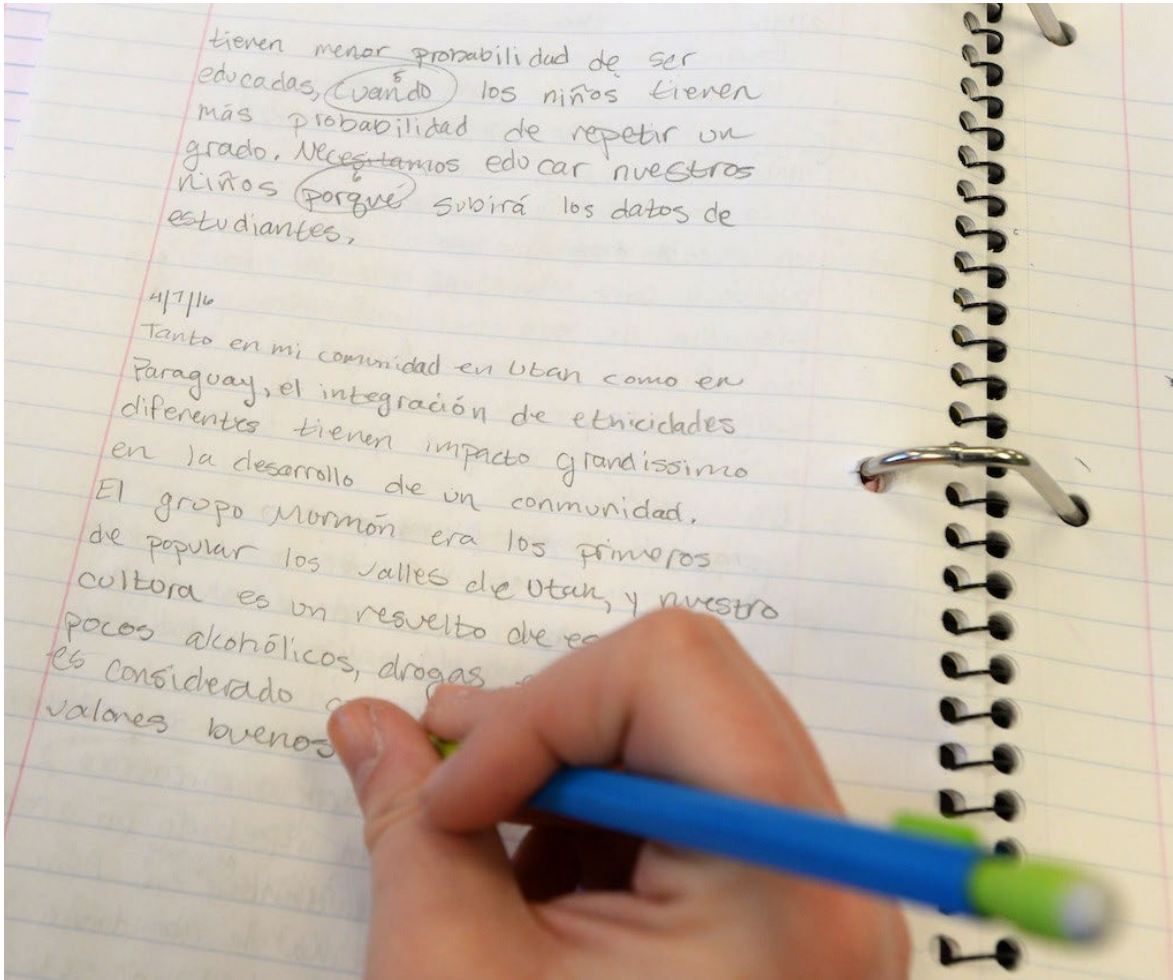 tienen menor probabilidad de ser
educadas, cuando los niños tienen
5
más probabilidad de repetir un
grado. Necesitamos educar nuestros
niños porqué subirá los datos de
6
estudiantes.
4/7/16
Tanto en mi comunidad en Utah como en
Paraguay, el integración de etnicidades
diferentes tienen impacto grandissimo
en la desarrollo de un conmunidad.
El grupo Mormón era los primeros
de popular los valles de Utah, y nuestro
cultura es un resuelto de
pocos alcohólicos, drogas
es considerado
valores buenos